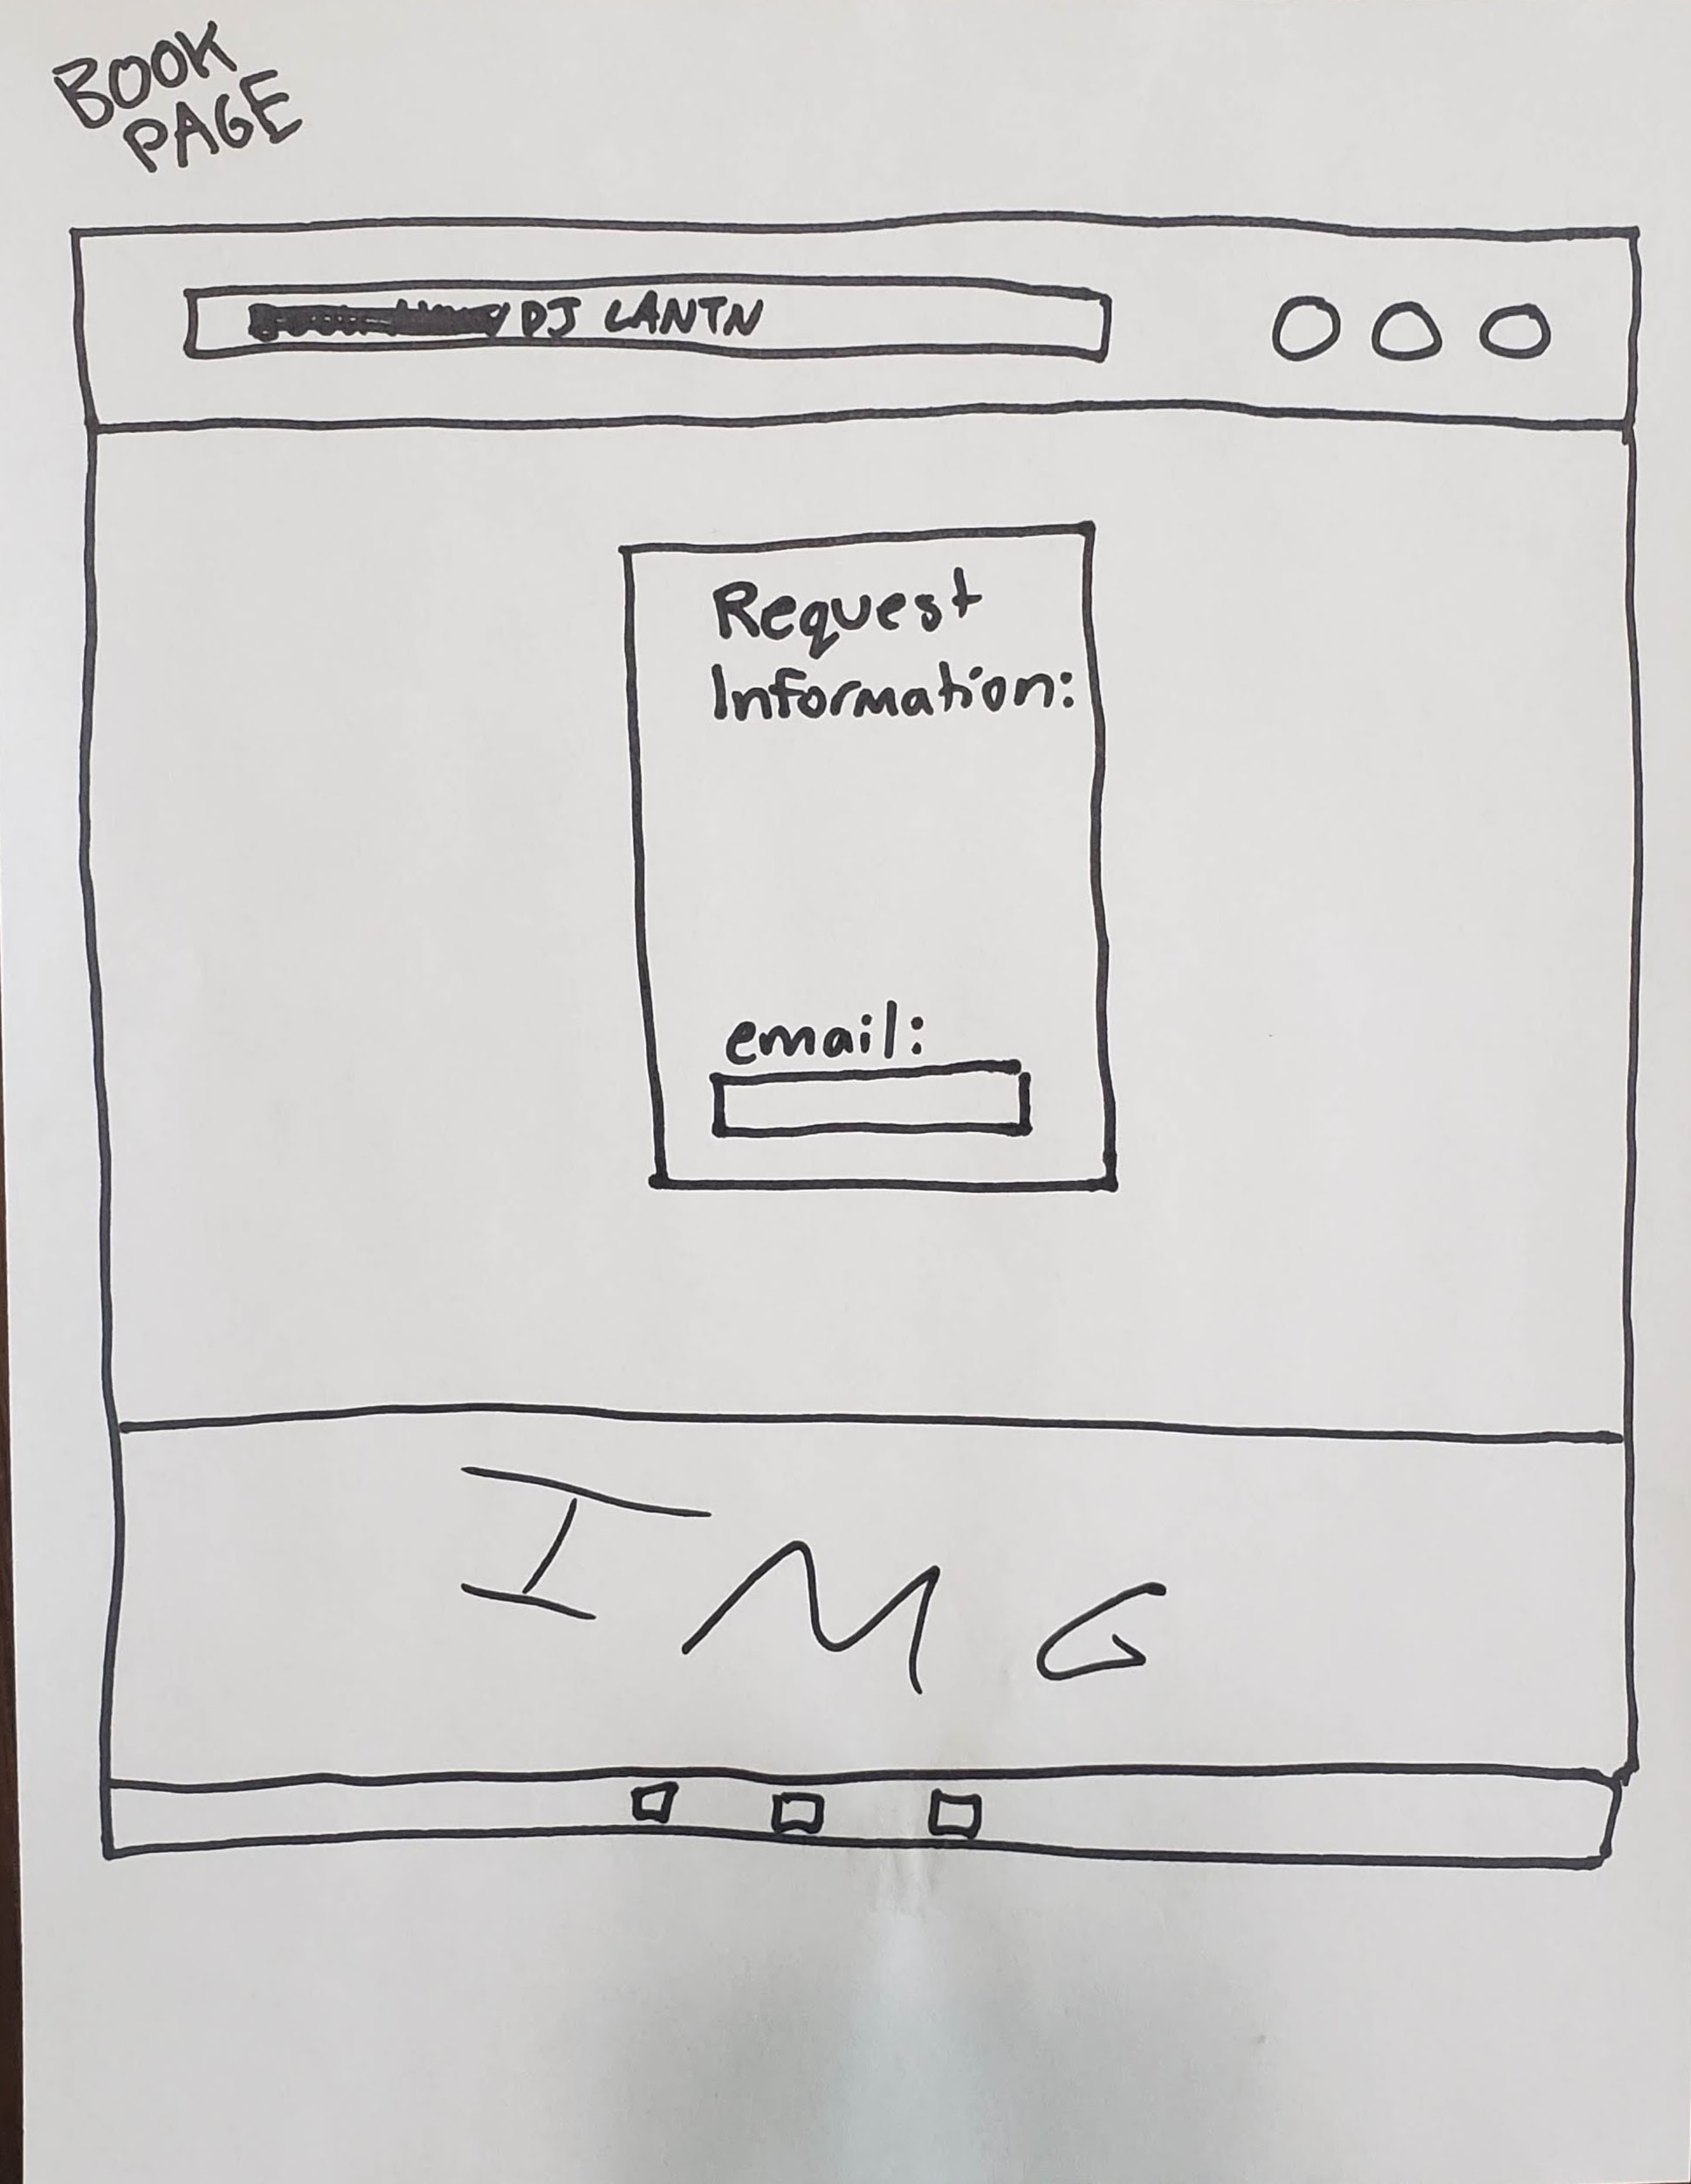 BOOK
PAGE
DJ LANTN
Request
Information:
email:
IMG